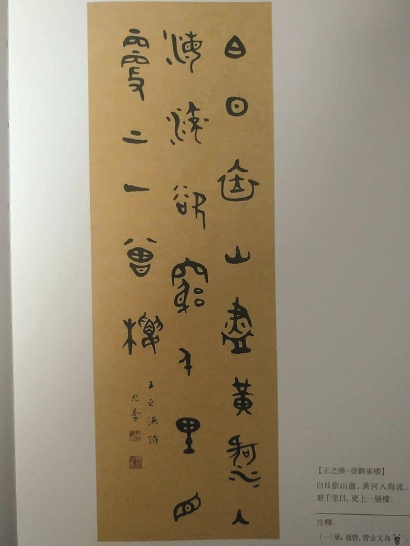 白日依山盡黃河入
海流欲窮千里目
更上一曾樓
王之渙詩
【王之渙·登鸛雀樓】
白日依山盡，黃河入海流。
窮千里目，更上一層樓。
注釋
（一）層，通曾，曾金文為